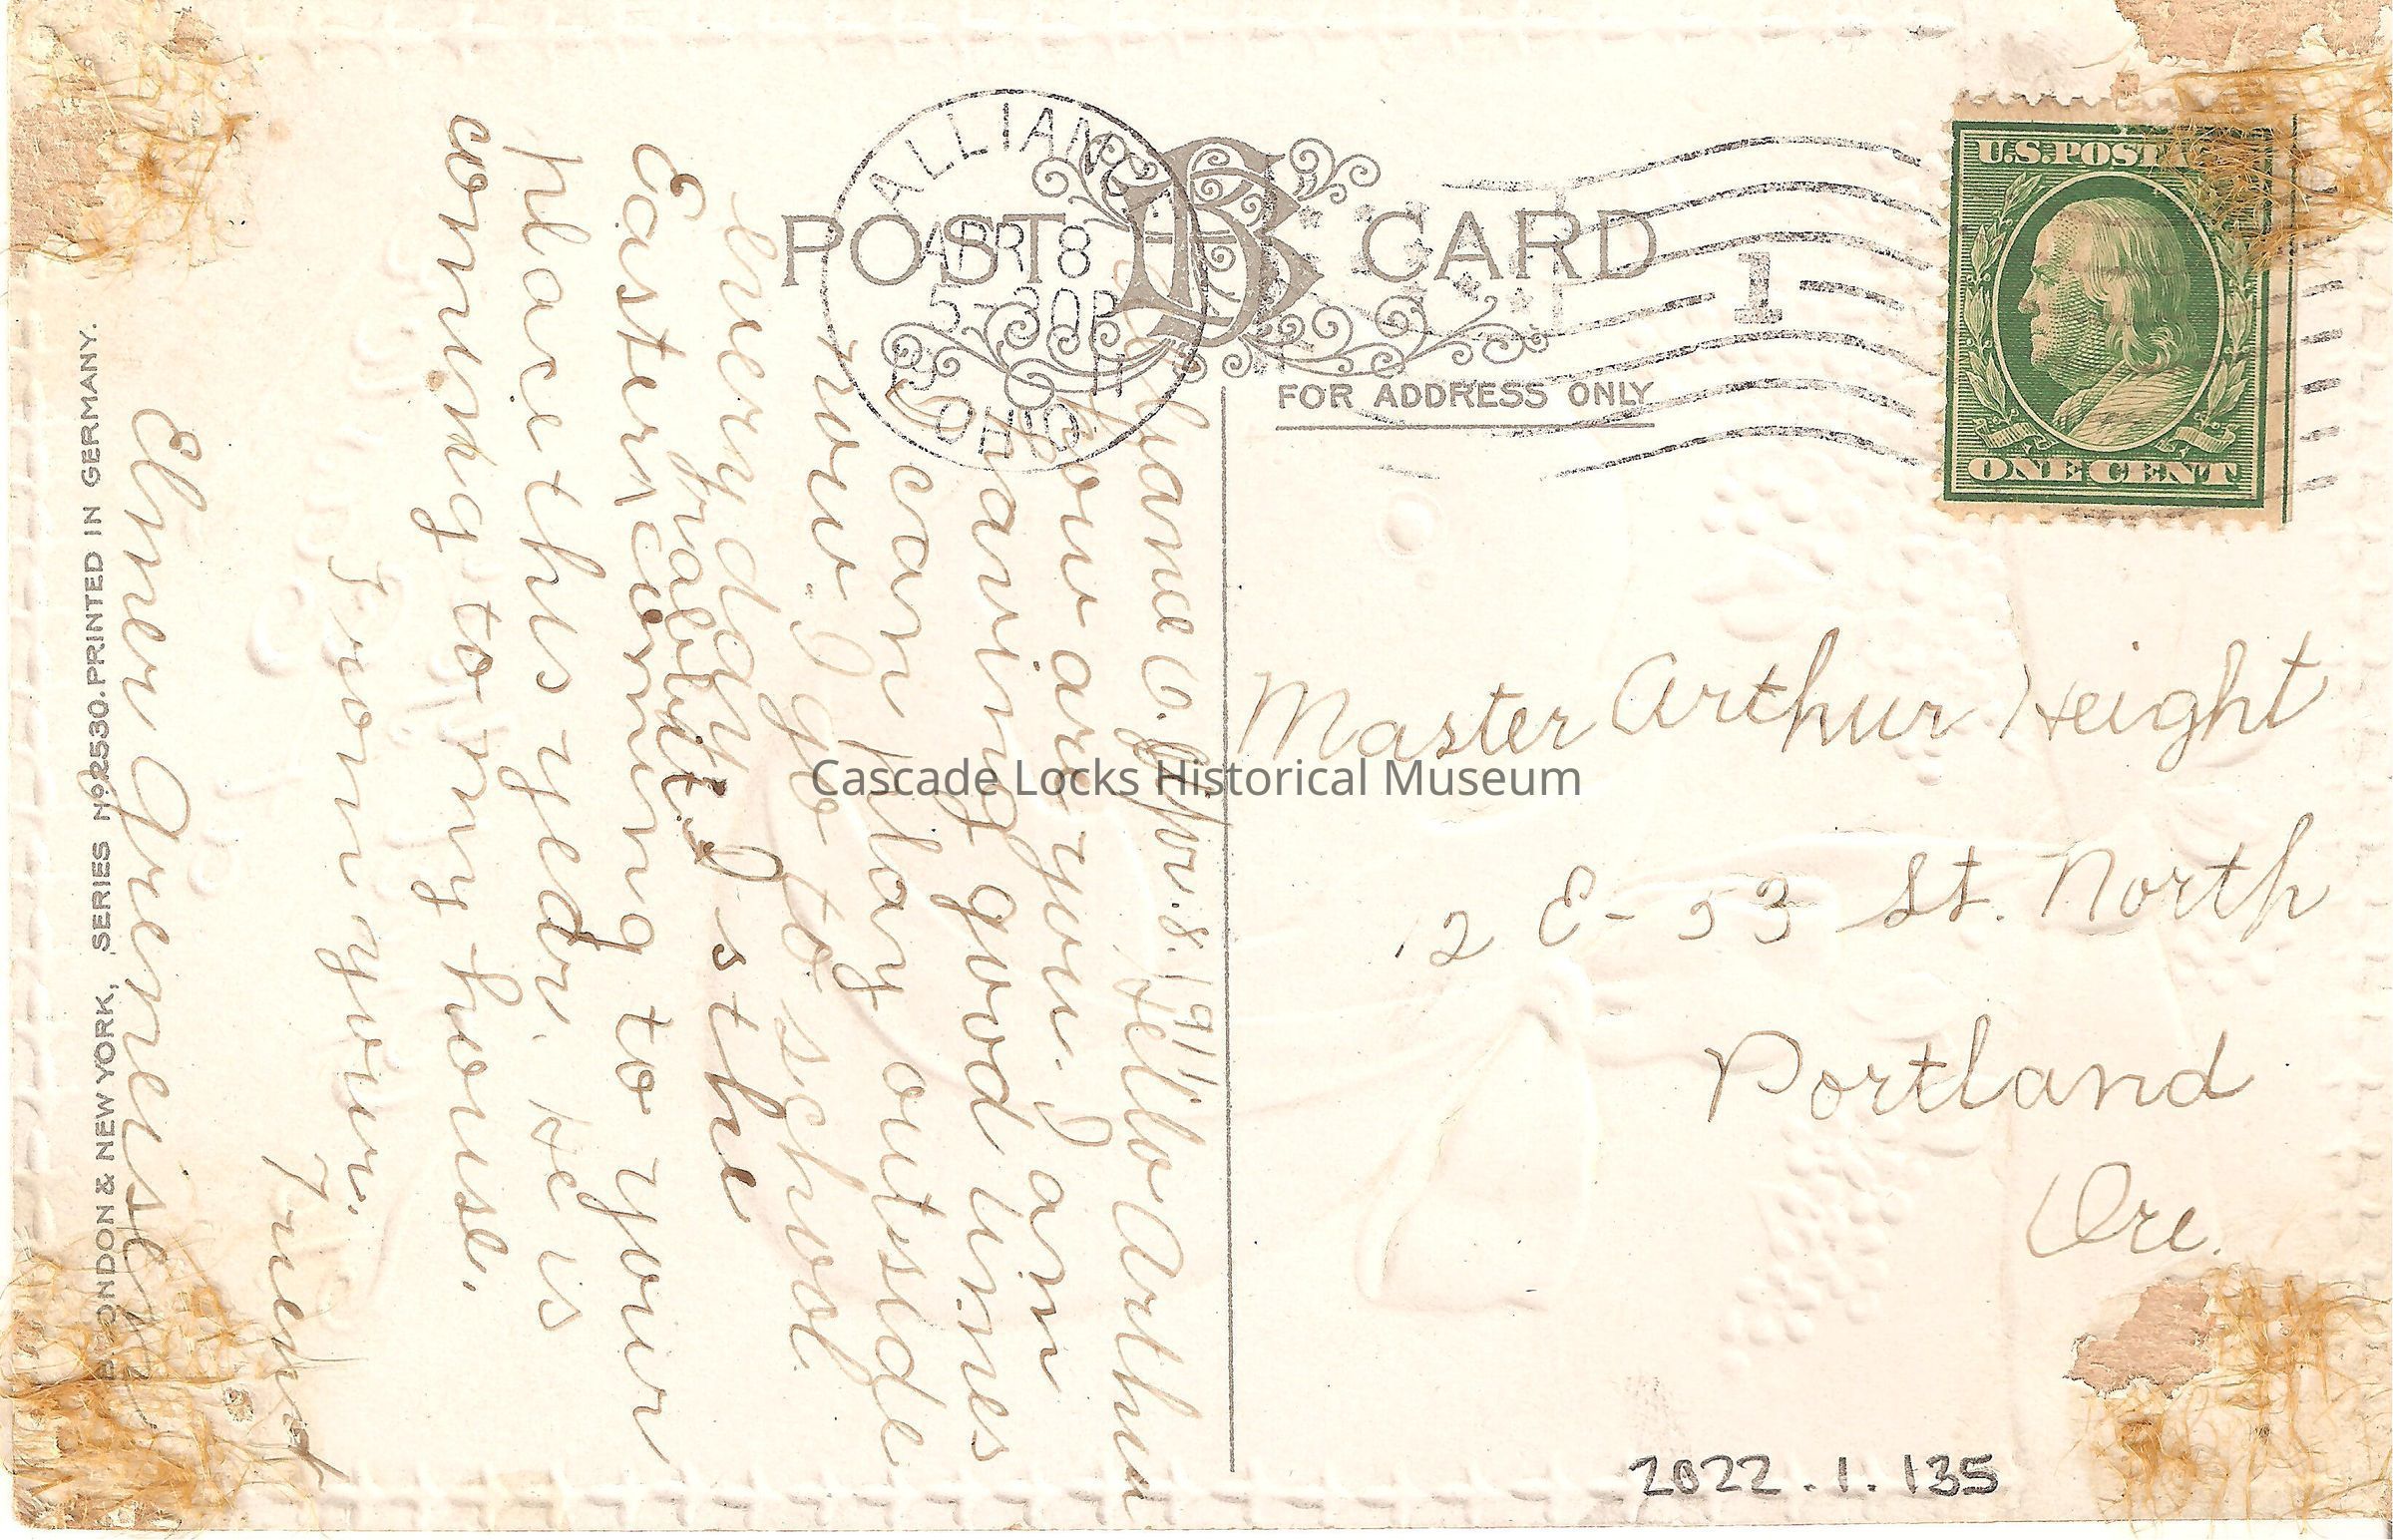 POST CARD
FOR ADDRESS ONLY
ALLIANCE
APR 8
5-30P
OHIO
1
U.S. POSTAGE
ONE CENT
Alliance O. Apr. 8. 1911.
Hello Arthur
how are you. I am
having good times
I can play outside
now. I go to school
every day. Is the
Easter rabbit
coming to your
place this year. He is
coming to my house.
From your
Friend
Elmer Greneisen
Master Arthur Height
12 E- 53 St. North
Portland
Ore.
LONDON & NEW YORK, SERIES No. 2530. PRINTED IN GERMANY.
Cascade Locks Historical Museum
2022.1.135